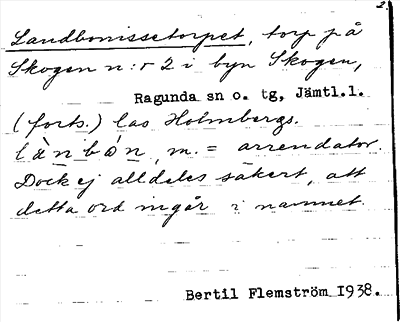 2.
Landbonissetorpet, torp på
Skogen n:r 2 i byn Skogen,
Ragunda sn o. tg, Jämtl.l.
(forts.) Cao Holmbergs.
lànbón, m. = arrendator.
Dock ej alldeles säkert, att
detta ord ingår i namnet.
Bertil Flemström 1938.